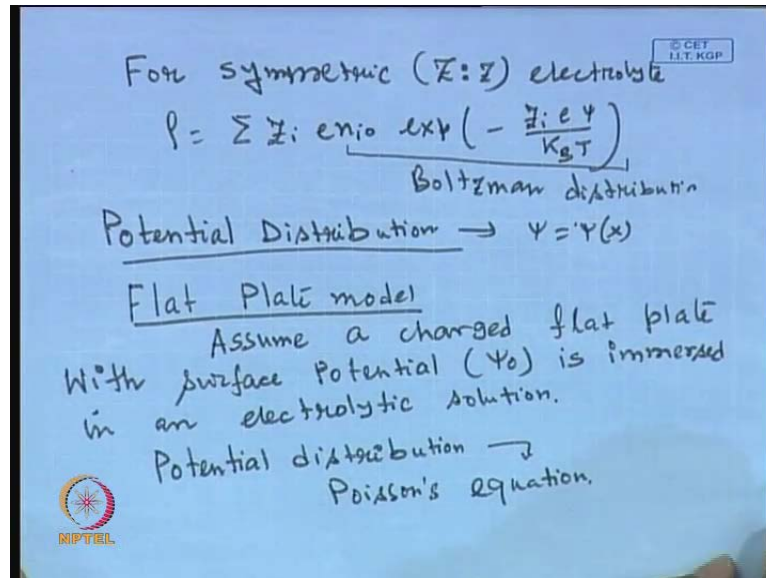 For symmetric (Z:Z) electrolyte
© CET
I.I.T. KGP
ρ = Σ Zi e nio exp(- Zi e Ψ / KB T)
Boltzman distribution
Potential Distribution → Ψ = Ψ(x)
Flat Plate model
Assume a charged flat plate
With surface Potential (Ψo) is immersed
in an electrolytic solution.
Potential distribution →
Poisson's equation.
NPTEL